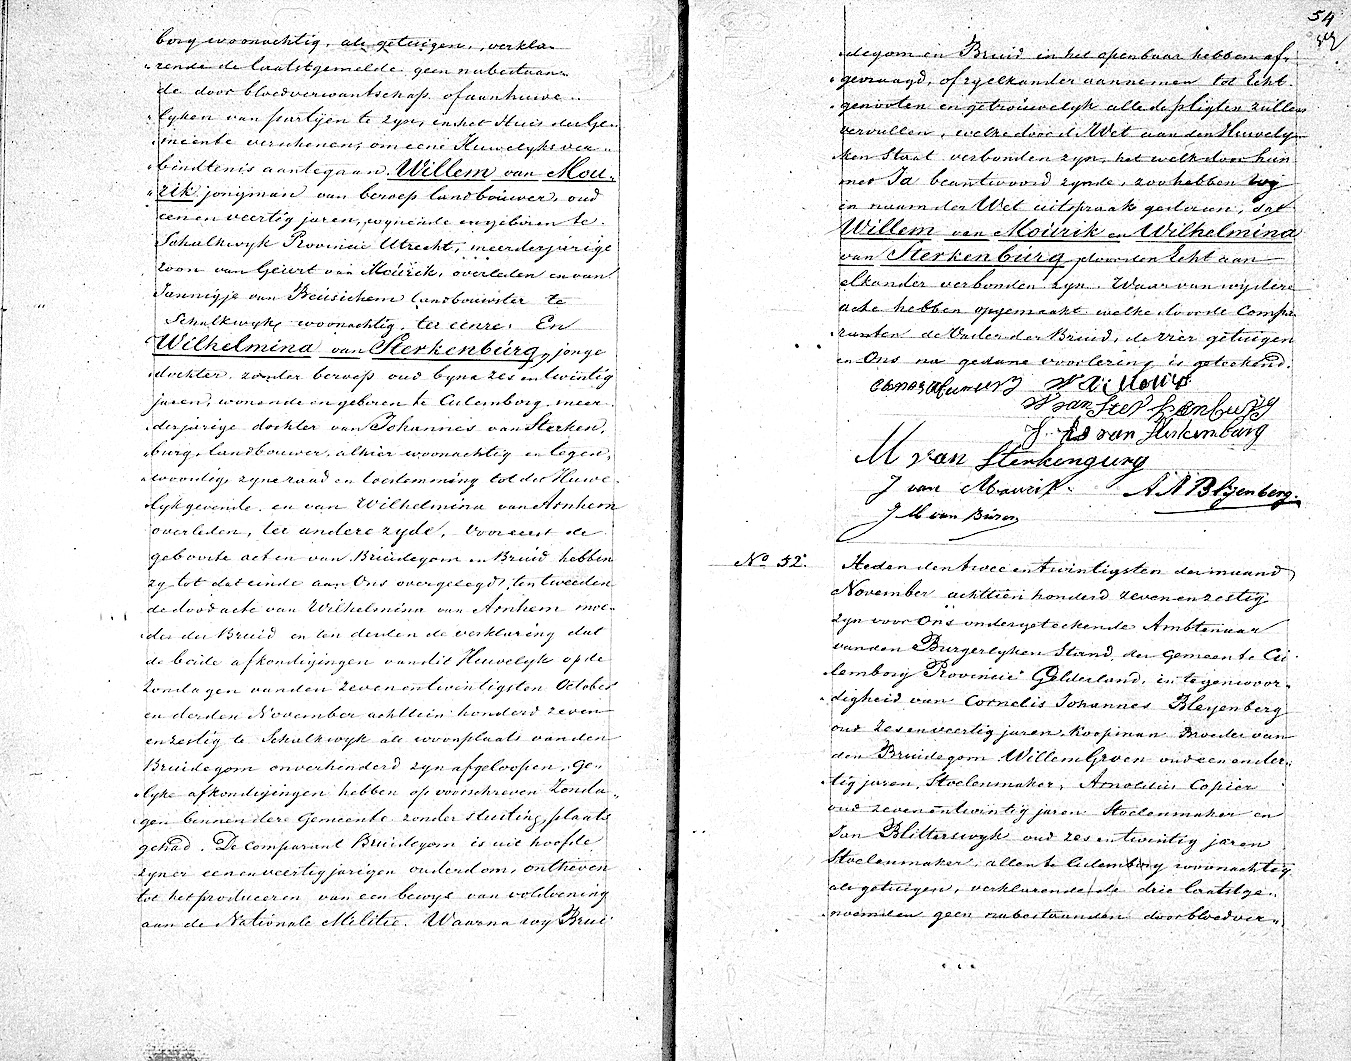 borg woonachtig, als getuigen, verkla-
rende de laatstgemelde geen nabestaan-
de door bloedverwantschap of aanhuwe-
lyken van partijen te zyn, en het Huis der Ge-
meente verschenen, om eene Huwelyksver-
bindtenis aantegaan Willem van Mou-
rik jongman van beroep landbouwer, oud
een en veertig jaren, wonende en geboren te
Schalkwyk Provincie Utrecht, meerderjarige
zoon van Geurt van Moúrik, overleden en van
Jannigje van Beusichem landbouwster te
Schalkwyk woonachtig, ter eenre. En
Wilhelmina van Sterkenbúrg, jonge
dochter, zonder beroep oud byna zes en twintig
jaren, wonende en geboren te Culemborg, meer-
derjarige dochter van Johannes van Sterken,
burg, landbouwer, alhier woonachtig en tegen,
woordig, zyne raad en toestemming tot dit Huwe-
lyk gevende, en van Wilhelmina van Arnhem
overleden, ter andere zyde, - Vooreerst de
geboorte acten van Bruidegom en Bruid hebben
zy tot dat einde aan Ons overgelegd, ten tweeden
de dood acte van Wilhelmina van Arnhem moe-
der der Bruid en ten derden de verklaring dat
de beide afkondigingen van dit Huwelyk op de
Zondagen van den zeven en twintigsten October
en derden November achttien honderd zeven
en zestig te Schalkwyk als woonplaats van den
Bruidegom onverhinderd zyn afgeloopen, Ge-
lyke afkondigingen hebben op voorschreven Zonda-
gen binnen dere Gemeente zonder stuiting plaats
gehad. De Comparant Bruidegom is uit hoofde
zyner een en veertig jarigen ouderdom, ontheven
tot het produceren van een bewys van voldoening
aan de Nationale Militie. Waarna wy Brui-
54
degom en Bruid in het openbaar hebben af-
gevraagd, of zy elkander aannemen tot Echt-
genooten en getrouwelyk alle de pligten zullen
vervullen, welke door de Wet aan den Huwely-
ken Staat verbonden zyn, het welk door hun
met Ja beantwoord zynde, zoo hebben wy
in naam der Wet uitspraak gedaan, dat
Willem van Moúrik en Wilhelmina
van Sterkenbúrg door den Echt aan
elkander verbonden zyn. Waar van wy dere
acte hebben opgemaakt welke door de Compa-
ranten de Vader der Bruid, de vier getuigen
en Ons na gedane voorlezing is geteekend.
W van Sterkenburg
van Sterkenburg
M van Sterkenburg
J van Mourik. A A Blyenberg.
J M van Buren
No 52. Heden den twee en twintigsten der maand
November achttien honderd zeven en zestig
zyn voor Ons ondergeteekende Ambtenaar
van den Burgerlyken Stand, der Gemeente Cu-
lemborg Provincie Gelderland, in tegenwoor-
digheid van Cornelis Johannes Bleyenberg
oud zes en veertig jaren Koopman Broeder van
den Bruidegom Willem Groen oud een en der-
tig jaren, Stoelenmaker, Arnoldus Copier
oud zeven en twintig jaren Stoelenmaker en
Jan Blitterswyk oud zes en twintig jaren
Stoelenmaker, allen te Culemborg woonachtig
als getuigen, verklarende de drie laatstge-
noemden geen nabestaanden door bloedver-